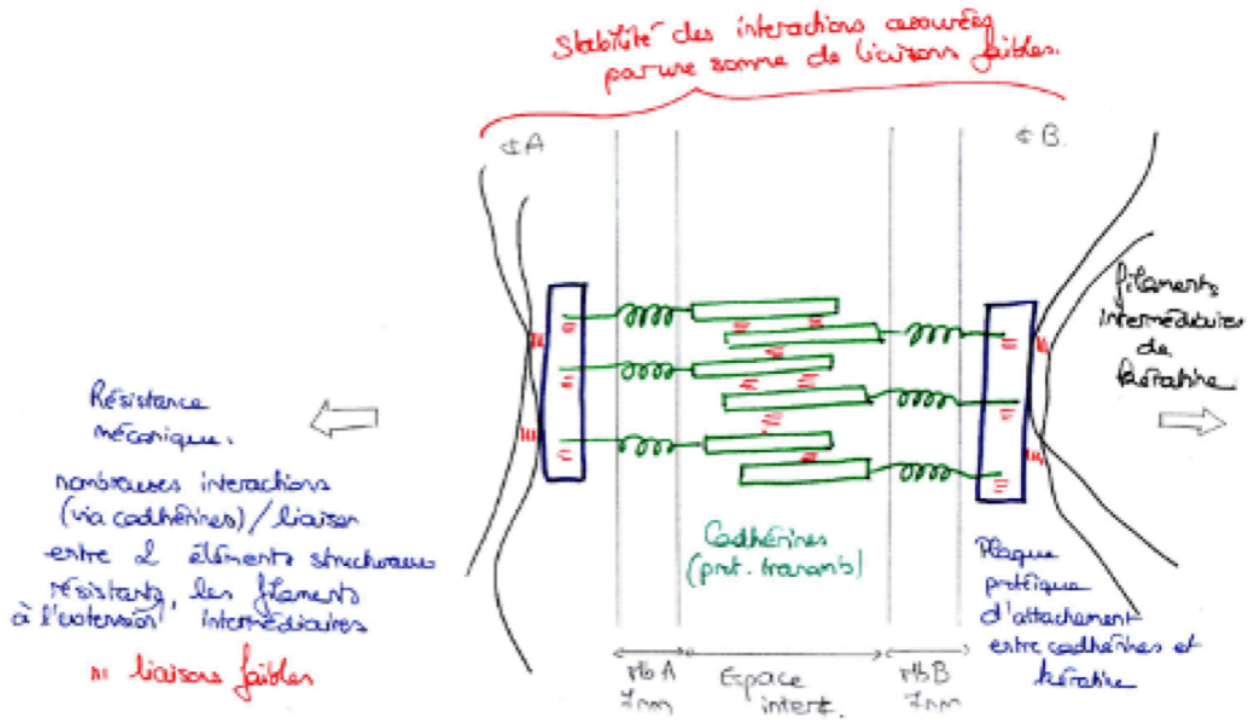 Stabilité des interactions assurées
par une somme de liaisons faibles.
¢ A
¢ B.
filaments
intermédiaires
de
kératine
Résistance
mécanique.
nombreuses interactions
(via cadhérines) / liaison
entre 2 éléments structuraux
résistants, les filaments
à l'extension intermédiaires
liaisons faibles
Cadhérines
(prot. transmb)
Plaque
protéique
d'attachement
entre cadhérines et
kératine
mb A
7nm
Espace
intert.
mb B
7nm